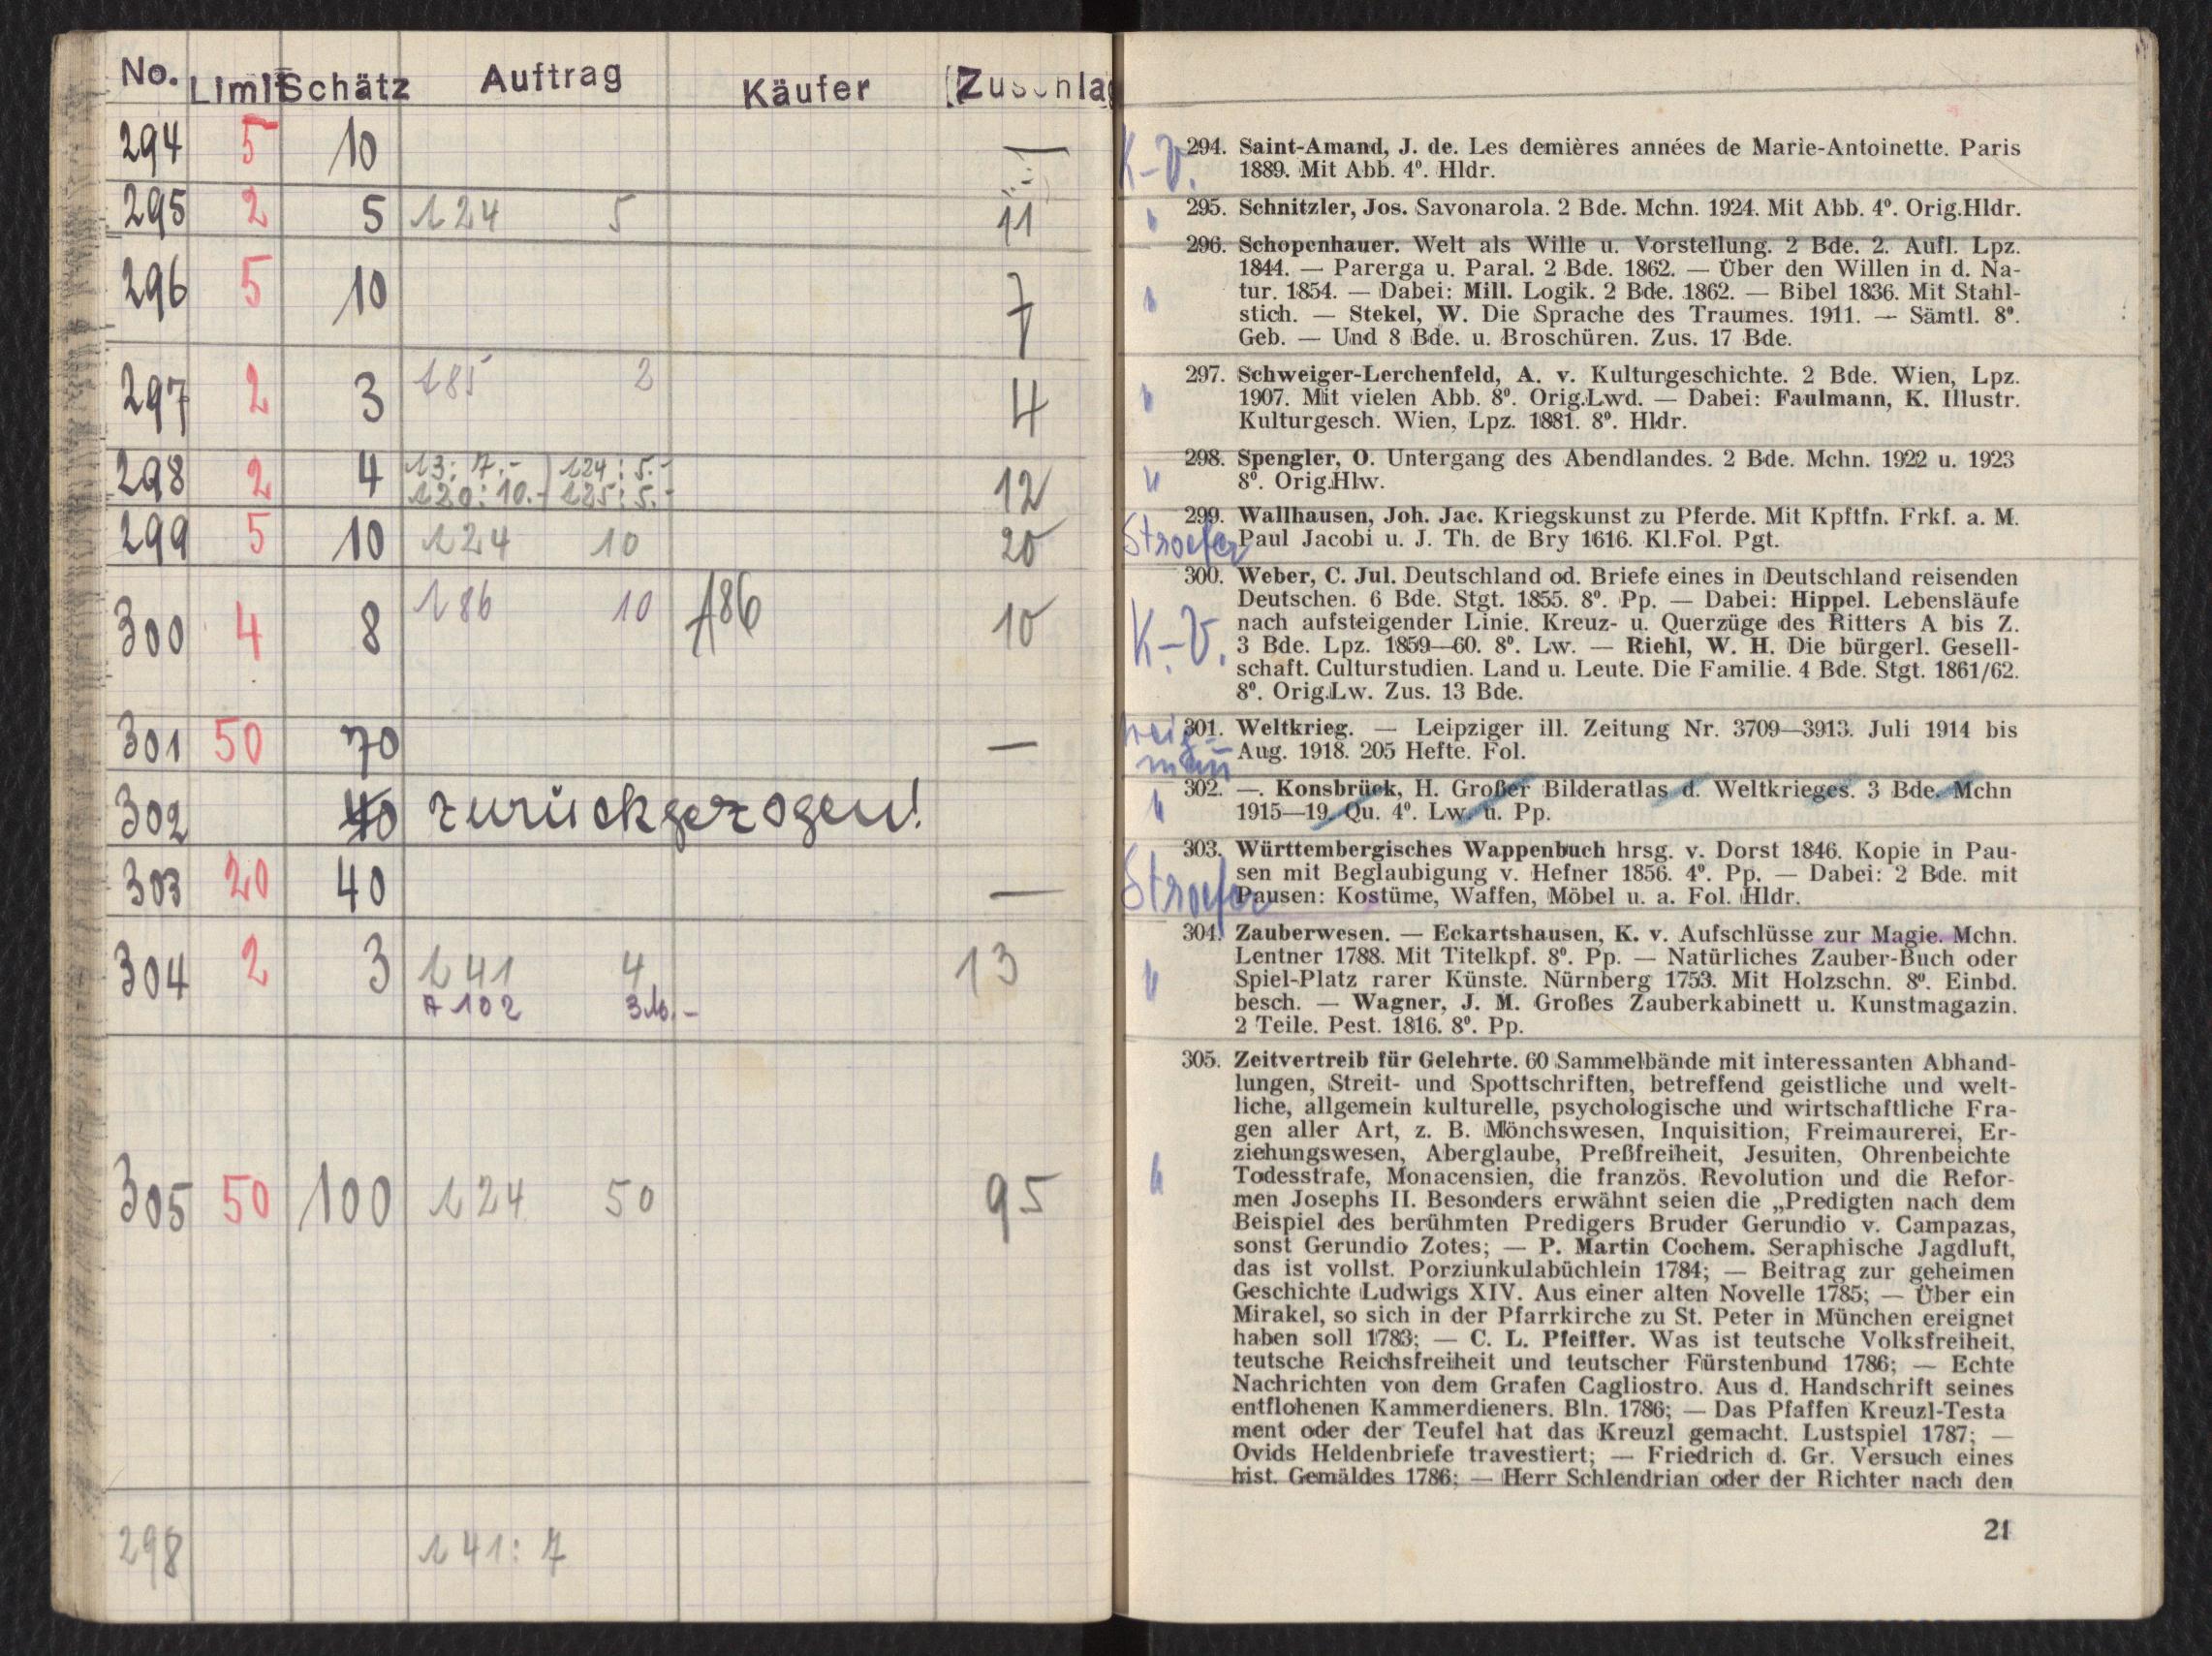 No. Limit Schätz Auftrag Käufer Zuschlag
294 5 10 —
295 2 5 124 5 11
296 5 10 7
297 2 3 185 2 4
298 2 4 13: 7.- 124: 5.-
120: 10.- 125: 5.- 12
299 5 10 124 10 20
300 4 8 186 10 A86 10
301 50 70 —
302 40 zurückgezogen!
303 20 40 —
304 2 3 141 4 13
A 102
305 50 100 124 50 95
298 141: 7
K-V. 294. Saint-Amand, J. de. Les demières années de Marie-Antoinette. Paris
1889. Mit Abb. 4⁰. Hldr.
295. Schnitzler, Jos. Savonarola. 2 Bde. Mchn. 1924. Mit Abb. 4⁰. Orig.Hldr.
296. Schopenhauer. Welt als Wille u. Vorstellung. 2 Bde. 2. Aufl. Lpz.
1844. — Parerga u. Paral. 2 Bde. 1862. — Über den Willen in d. Na-
tur. 1854. — Dabei: Mill. Logik. 2 Bde. 1862. — Bibel 1836. Mit Stahl-
stich. — Stekel, W. Die Sprache des Traumes. 1911. — Sämtl. 8⁰.
Geb. — Und 8 Bde. u. Broschüren. Zus. 17 Bde.
297. Schweiger-Lerchenfeld, A. v. Kulturgeschichte. 2 Bde. Wien, Lpz.
1907. Mit vielen Abb. 8⁰. Orig.Lwd. — Dabei: Faulmann, K. Illustr.
Kulturgesch. Wien, Lpz. 1881. 8⁰. Hldr.
298. Spengler, O. Untergang des Abendlandes. 2 Bde. Mchn. 1922 u. 1923
8⁰. Orig.Hlw.
299. Wallhausen, Joh. Jac. Kriegskunst zu Pferde. Mit Kpftfn. Frkf. a. M.
Stroefer Paul Jacobi u. J. Th. de Bry 1616. Kl.Fol. Pgt.
300. Weber, C. Jul. Deutschland od. Briefe eines in Deutschland reisenden
Deutschen. 6 Bde. Stgt. 1855. 8⁰. Pp. — Dabei: Hippel. Lebensläufe
nach aufsteigender Linie. Kreuz- u. Querzüge des Ritters A bis Z.
K.-V. 3 Bde. Lpz. 1859—60. 8⁰. Lw. — Riehl, W. H. Die bürgerl. Gesell-
schaft. Culturstudien. Land u. Leute. Die Familie. 4 Bde. Stgt. 1861/62.
8⁰. Orig.Lw. Zus. 13 Bde.
301. Weltkrieg. — Leipziger ill. Zeitung Nr. 3709—3913. Juli 1914 bis
Aug. 1918. 205 Hefte. Fol.
302. —. Konsbrück, H. Großer Bilderatlas d. Weltkrieges. 3 Bde. Mchn
1915—19. Qu. 4⁰. Lw. u. Pp.
303. Württembergisches Wappenbuch hrsg. v. Dorst 1846. Kopie in Pau-
sen mit Beglaubigung v. Hefner 1856. 4⁰. Pp. — Dabei: 2 Bde. mit
Stroefer Pausen: Kostüme, Waffen, Möbel u. a. Fol. Hldr.
304. Zauberwesen. — Eckartshausen, K. v. Aufschlüsse zur Magie. Mchn.
Lentner 1788. Mit Titelkpf. 8⁰. Pp. — Natürliches Zauber-Buch oder
Spiel-Platz rarer Künste. Nürnberg 1753. Mit Holzschn. 8⁰. Einbd.
besch. — Wagner, J. M. Großes Zauberkabinett u. Kunstmagazin.
2 Teile. Pest. 1816. 8⁰. Pp.
305. Zeitvertreib für Gelehrte. 60 Sammelbände mit interessanten Abhand-
lungen, Streit- und Spottschriften, betreffend geistliche und welt-
liche, allgemein kulturelle, psychologische und wirtschaftliche Fra-
gen aller Art, z. B. Mönchswesen, Inquisition, Freimaurerei, Er-
ziehungswesen, Aberglaube, Preßfreiheit, Jesuiten, Ohrenbeichte
Todesstrafe, Monacensien, die französ. Revolution und die Refor-
men Josephs II. Besonders erwähnt seien die „Predigten nach dem
Beispiel des berühmten Predigers Bruder Gerundio v. Campazas,
sonst Gerundio Zotes; — P. Martin Cochem. Seraphische Jagdluft,
das ist vollst. Porziunkulabüchlein 1784; — Beitrag zur geheimen
Geschichte Ludwigs XIV. Aus einer alten Novelle 1785; — Über ein
Mirakel, so sich in der Pfarrkirche zu St. Peter in München ereignet
haben soll 1783; — C. L. Pfeiffer. Was ist teutsche Volksfreiheit,
teutsche Reichsfreiheit und teutscher Fürstenbund 1786; — Echte
Nachrichten von dem Grafen Cagliostro. Aus d. Handschrift seines
entflohenen Kammerdieners. Bln. 1786; — Das Pfaffen Kreuzl-Testa
ment oder der Teufel hat das Kreuzl gemacht. Lustspiel 1787; —
Ovids Heldenbriefe travestiert; — Friedrich d. Gr. Versuch eines
hist. Gemäldes 1786; — Herr Schlendrian oder der Richter nach den
21